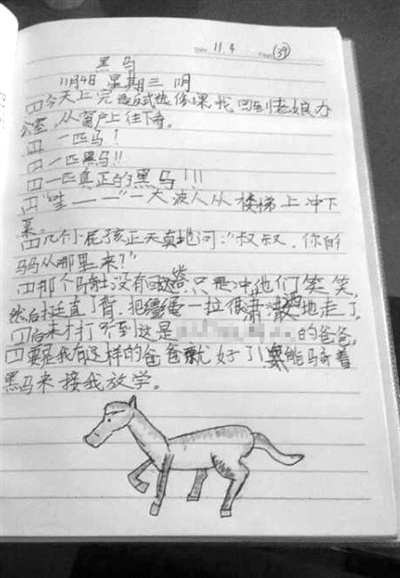 11.4 39
黑马
11月4日 星期三 阴
今天上完 课我回到老娘办
公室,从窗户上往下看。
一匹马!
一匹黑马!!
一匹真正的黑马!!!
“哇——”一大波人从楼梯上冲下
来。
几个小屁孩正天真地问:“叔叔,你的
马从那里来?”
那个骑士没有回答,只是冲他们笑笑,
然后挺直了背,把 一拉很潇洒地走了
后来才打听到这是 的爸爸,
要是我有这样的爸爸就好了! 能骑着
黑马来接我放学。